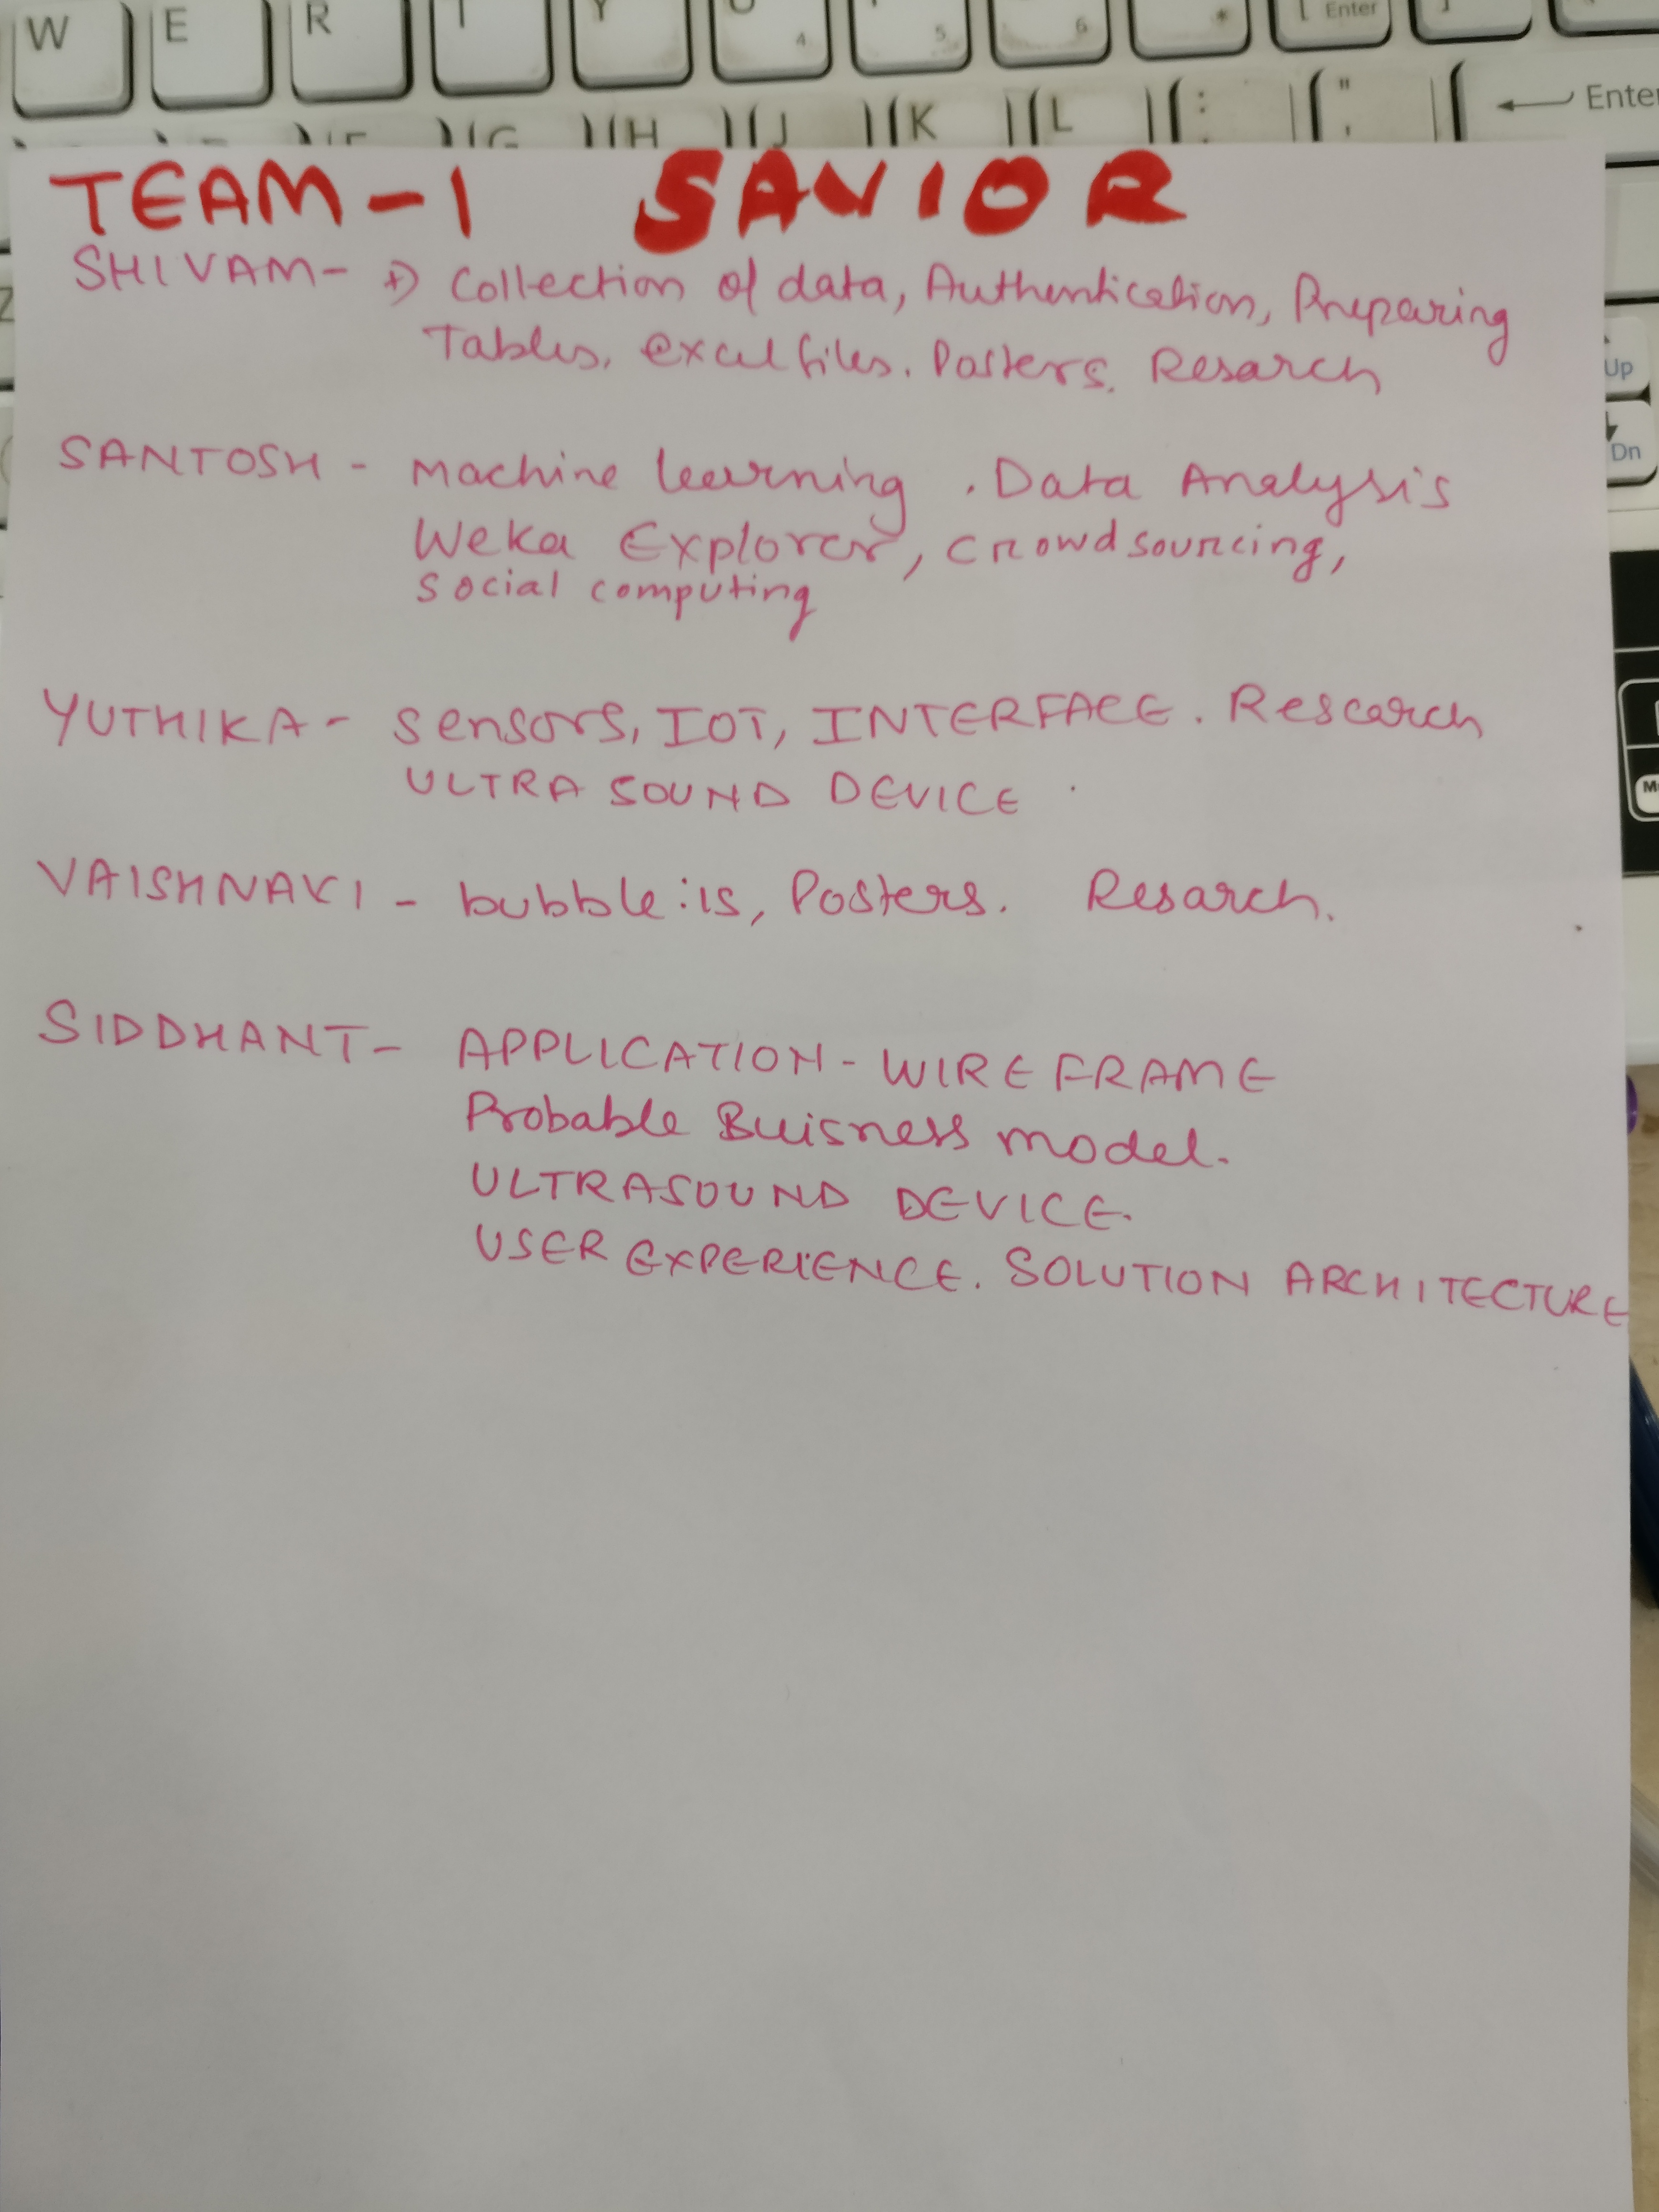 W E R T Y U 4 5 6 * [ Enter ]
G H J K L : ; " ' Enter
TEAM-1 SAVIOR
SHIVAM- 1) Collection of data, Authentication, Preparing
Tables, excel files. Posters. Resarch
Up
SANTOSH - Machine learning . Data Analysis
Dn
Weka Explorer, crowdsourcing,
social computing
YUTHIKA - Sensors, IOT, INTERFACE. Research
ULTRA SOUND DEVICE .
VAISHNAVI - bubble:is, Posters. Resarch.
SIDDHANT - APPLICATION - WIREFRAME
Probable Buisness model.
ULTRASOUND DEVICE.
USER EXPERIENCE. SOLUTION ARCHITECTURE